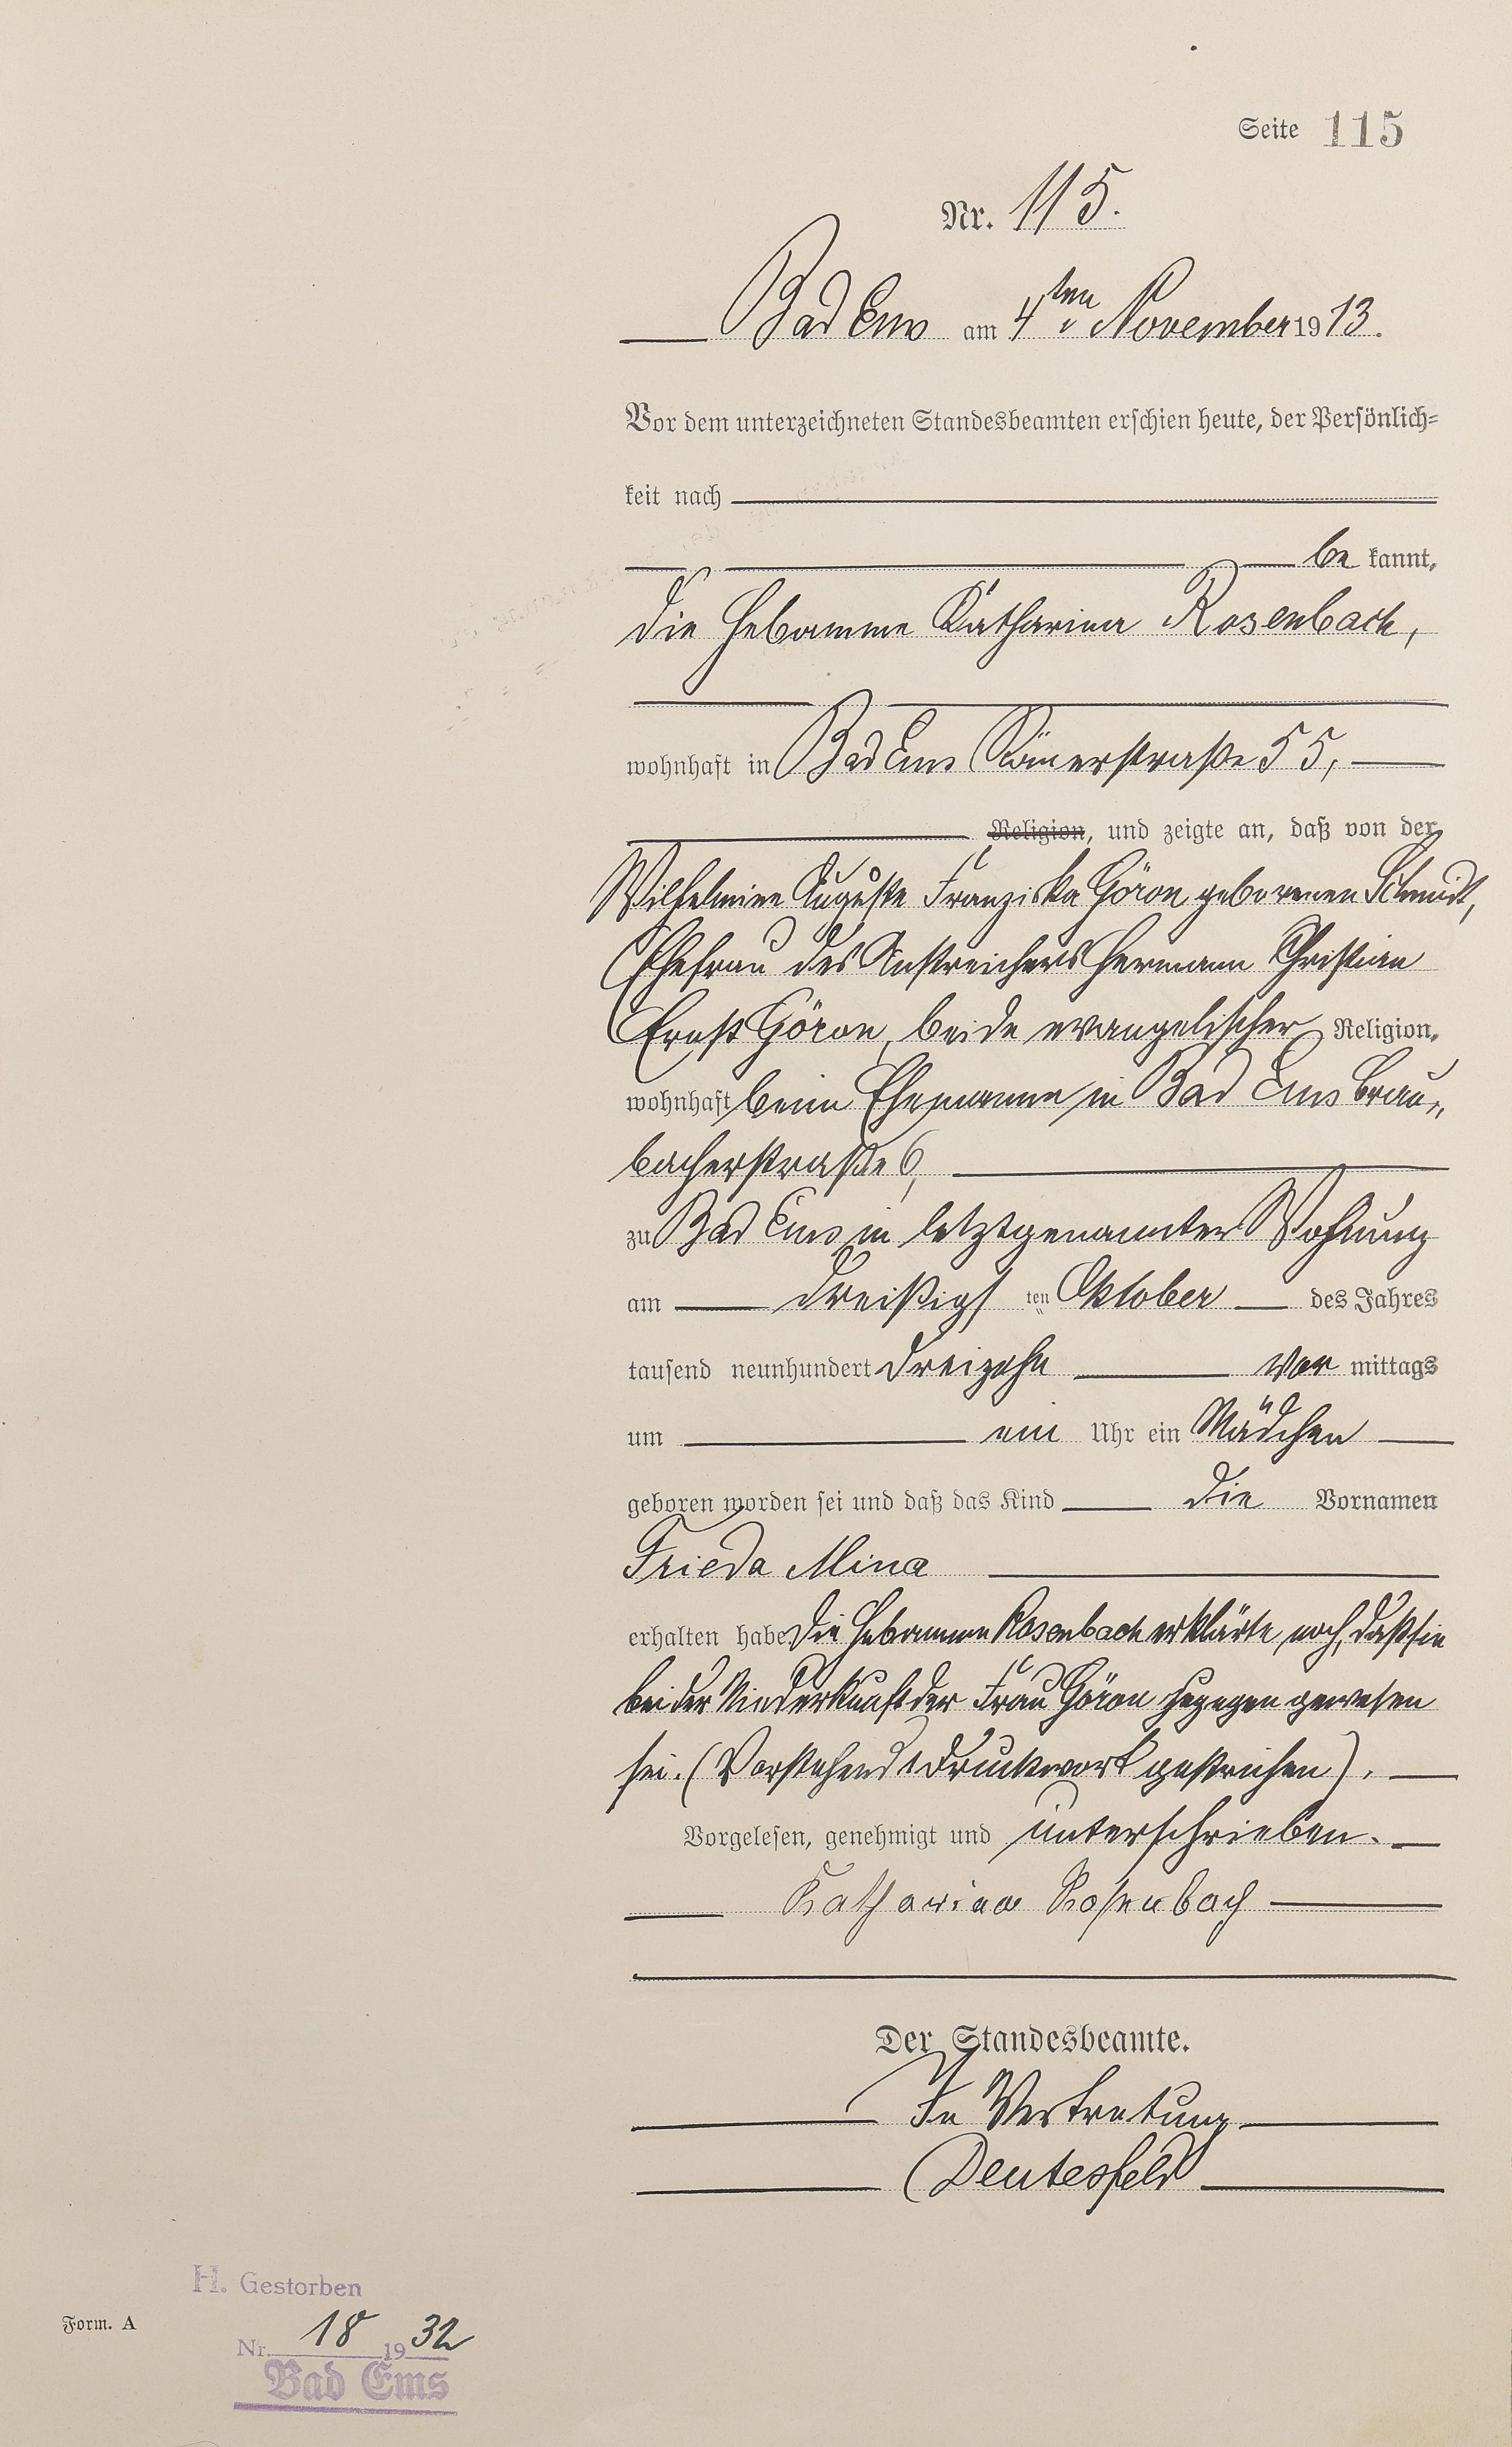 Seite 115
Nr. 115.
Bad Ems am 4ten November 1913.
Vor dem unterzeichneten Standesbeamten erschien heute, der Persönlich-
keit nach
be kannt,
die Hebamme Katharina Rosenbach,
wohnhaft in Bad Ems Römerstraße 55,
Religion, und zeigte an, daß von der
Wilhelmine Auguste Franziska Göron geborenen Schmidt,
Ehefrau des Anstreichers Hermann Christian
Ernst Göron, beide evangelischer Religion,
wohnhaft beim Ehemanne in Bad Ems Brau„
bacherstraße 6,
zu Bad Ems in letztgenannter Wohnung
am dreißigsten Oktober des Jahres
tausend neunhundert dreizehn vor mittags
um ein Uhr ein Mädchen
geboren worden sei und daß das Kind die Vornamen
Frieda Mina
erhalten habe. Die Hebamme Rosenbach erklärte noch, daß sie
bei der Niederkunft der Frau Göron zugegen gewesen
sei. (Vorstehend 1 Druckwort gestrichen).
Vorgelesen, genehmigt und unterschrieben.
Katharina Rosenbach
Der Standesbeamte.
In Vertretung
Deutesfeld
H. Gestorben
Form. A
Nr. 18 1932
Bad Ems